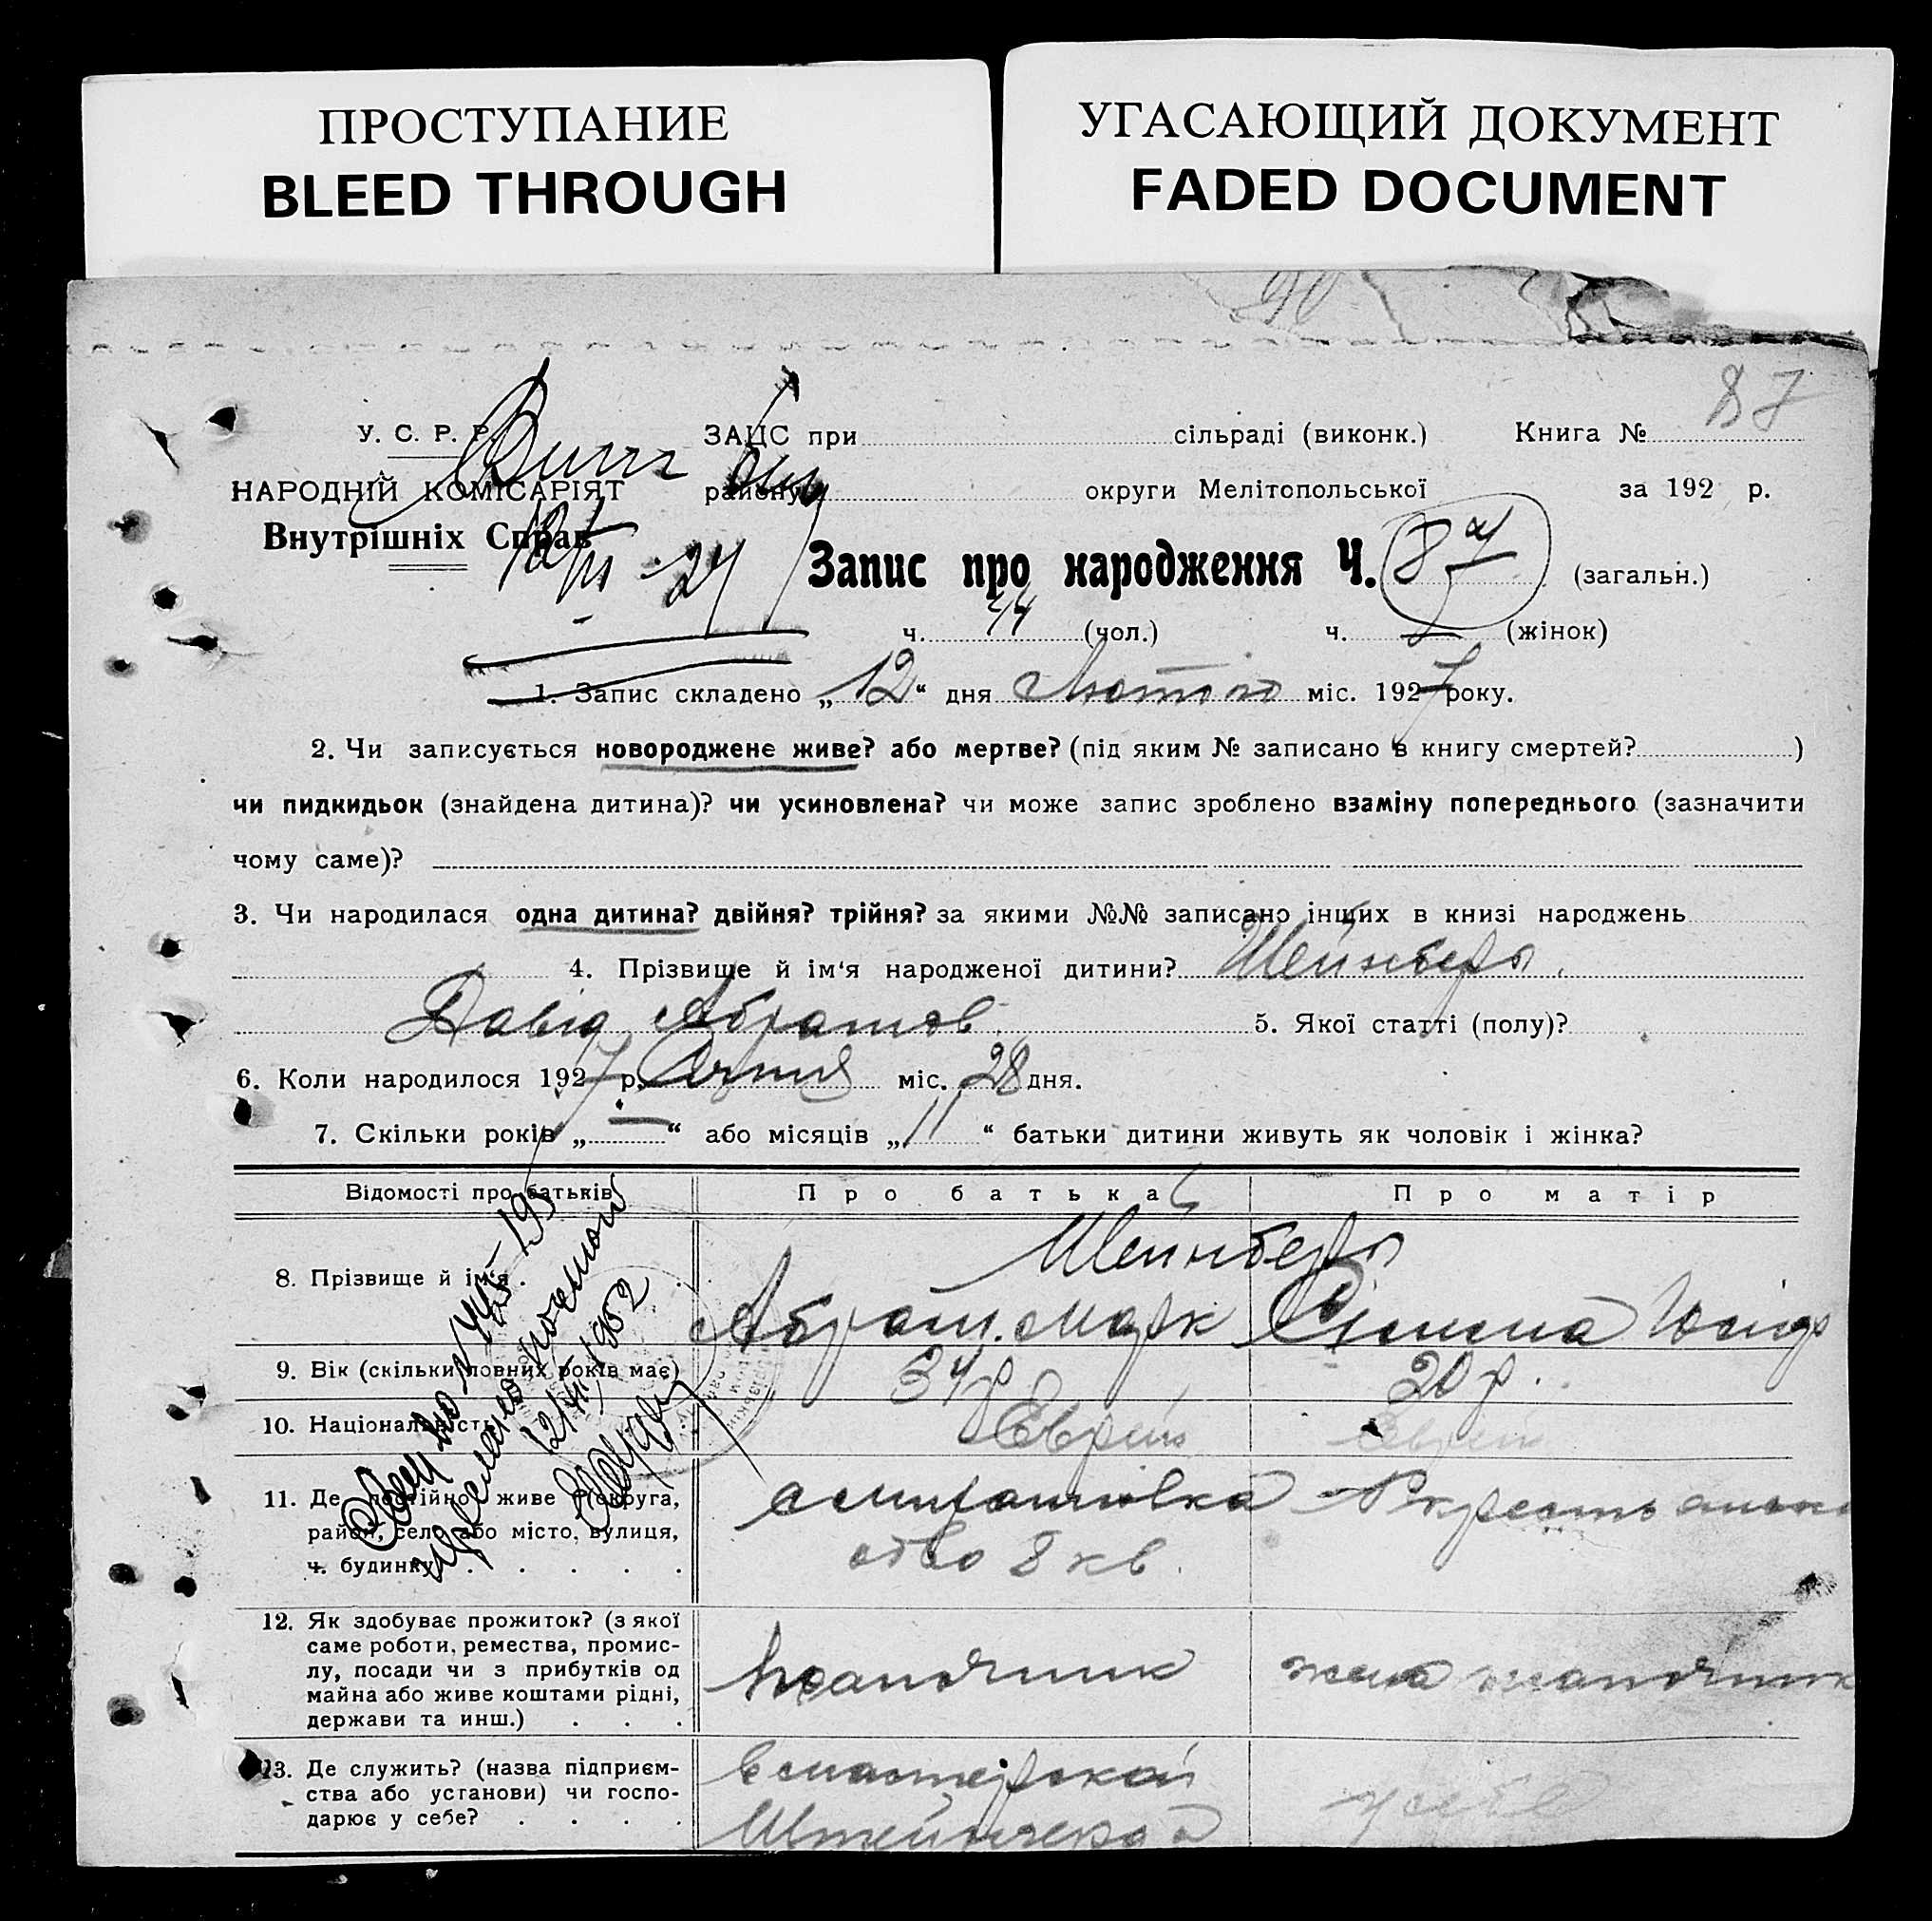 ПРОСТУПАНИЕ
BLEED THROUGH
УГАСАЮЩИЙ ДОКУМЕНТ
FADED DOCUMENT
90
87
У. С. Р. Р.
ЗАЦС при сільраді (виконк.) Книга №
НАРОДНІЙ КОМІСАРІЯТ
району округи Мелітопольської за 192 р.
Внутрішніх Справ
Запис про народження Ч. 87 (загальн.)
ч. 44 (чол.) ч. — (жінок)
1. Запис складено „12“ дня Лютого міс. 1927 року.
2. Чи записується новороджене живе? або мертве? (під яким № записано в книгу смертей? )
чи пидкидьок (знайдена дитина)? чи усиновлена? чи може запис зроблено взаміну попереднього (зазначити
чому саме)?
3. Чи народилася одна дитина? двійня? трійня? за якими №№ записано інщих в книзі народжень
4. Прізвище й ім‘я народженої дитини? Шейнберг.
Давід Абрамов 5. Якої статті (полу)?
6. Коли народилося 1927 р. Січня міс. 28 дня.
7. Скільки років „—“ або місяців „11“ батьки дитини живуть як чоловік і жінка?
Відомості про батьків Про батька Про матір
Шейнберг
8. Прізвище й ім‘я . Абрам. Марк
9. Вік (скільки повних років має) 34 р 20 р.
10. Національність Еврей Еврей
11. Де постійно живе (округа,
район, село або місто, вулиця,
ч. будинку) 8 кв.
12. Як здобуває прожиток? (з якої
саме роботи, ремества, промис-
лу, посади чи з прибутків од
майна або живе коштами рідні,
держави та инш.) Шапочник жена шапочник
13. Де служить? (назва підприєм-
ства або установи) чи госпо-
дарює у себе? В мастерской у себе